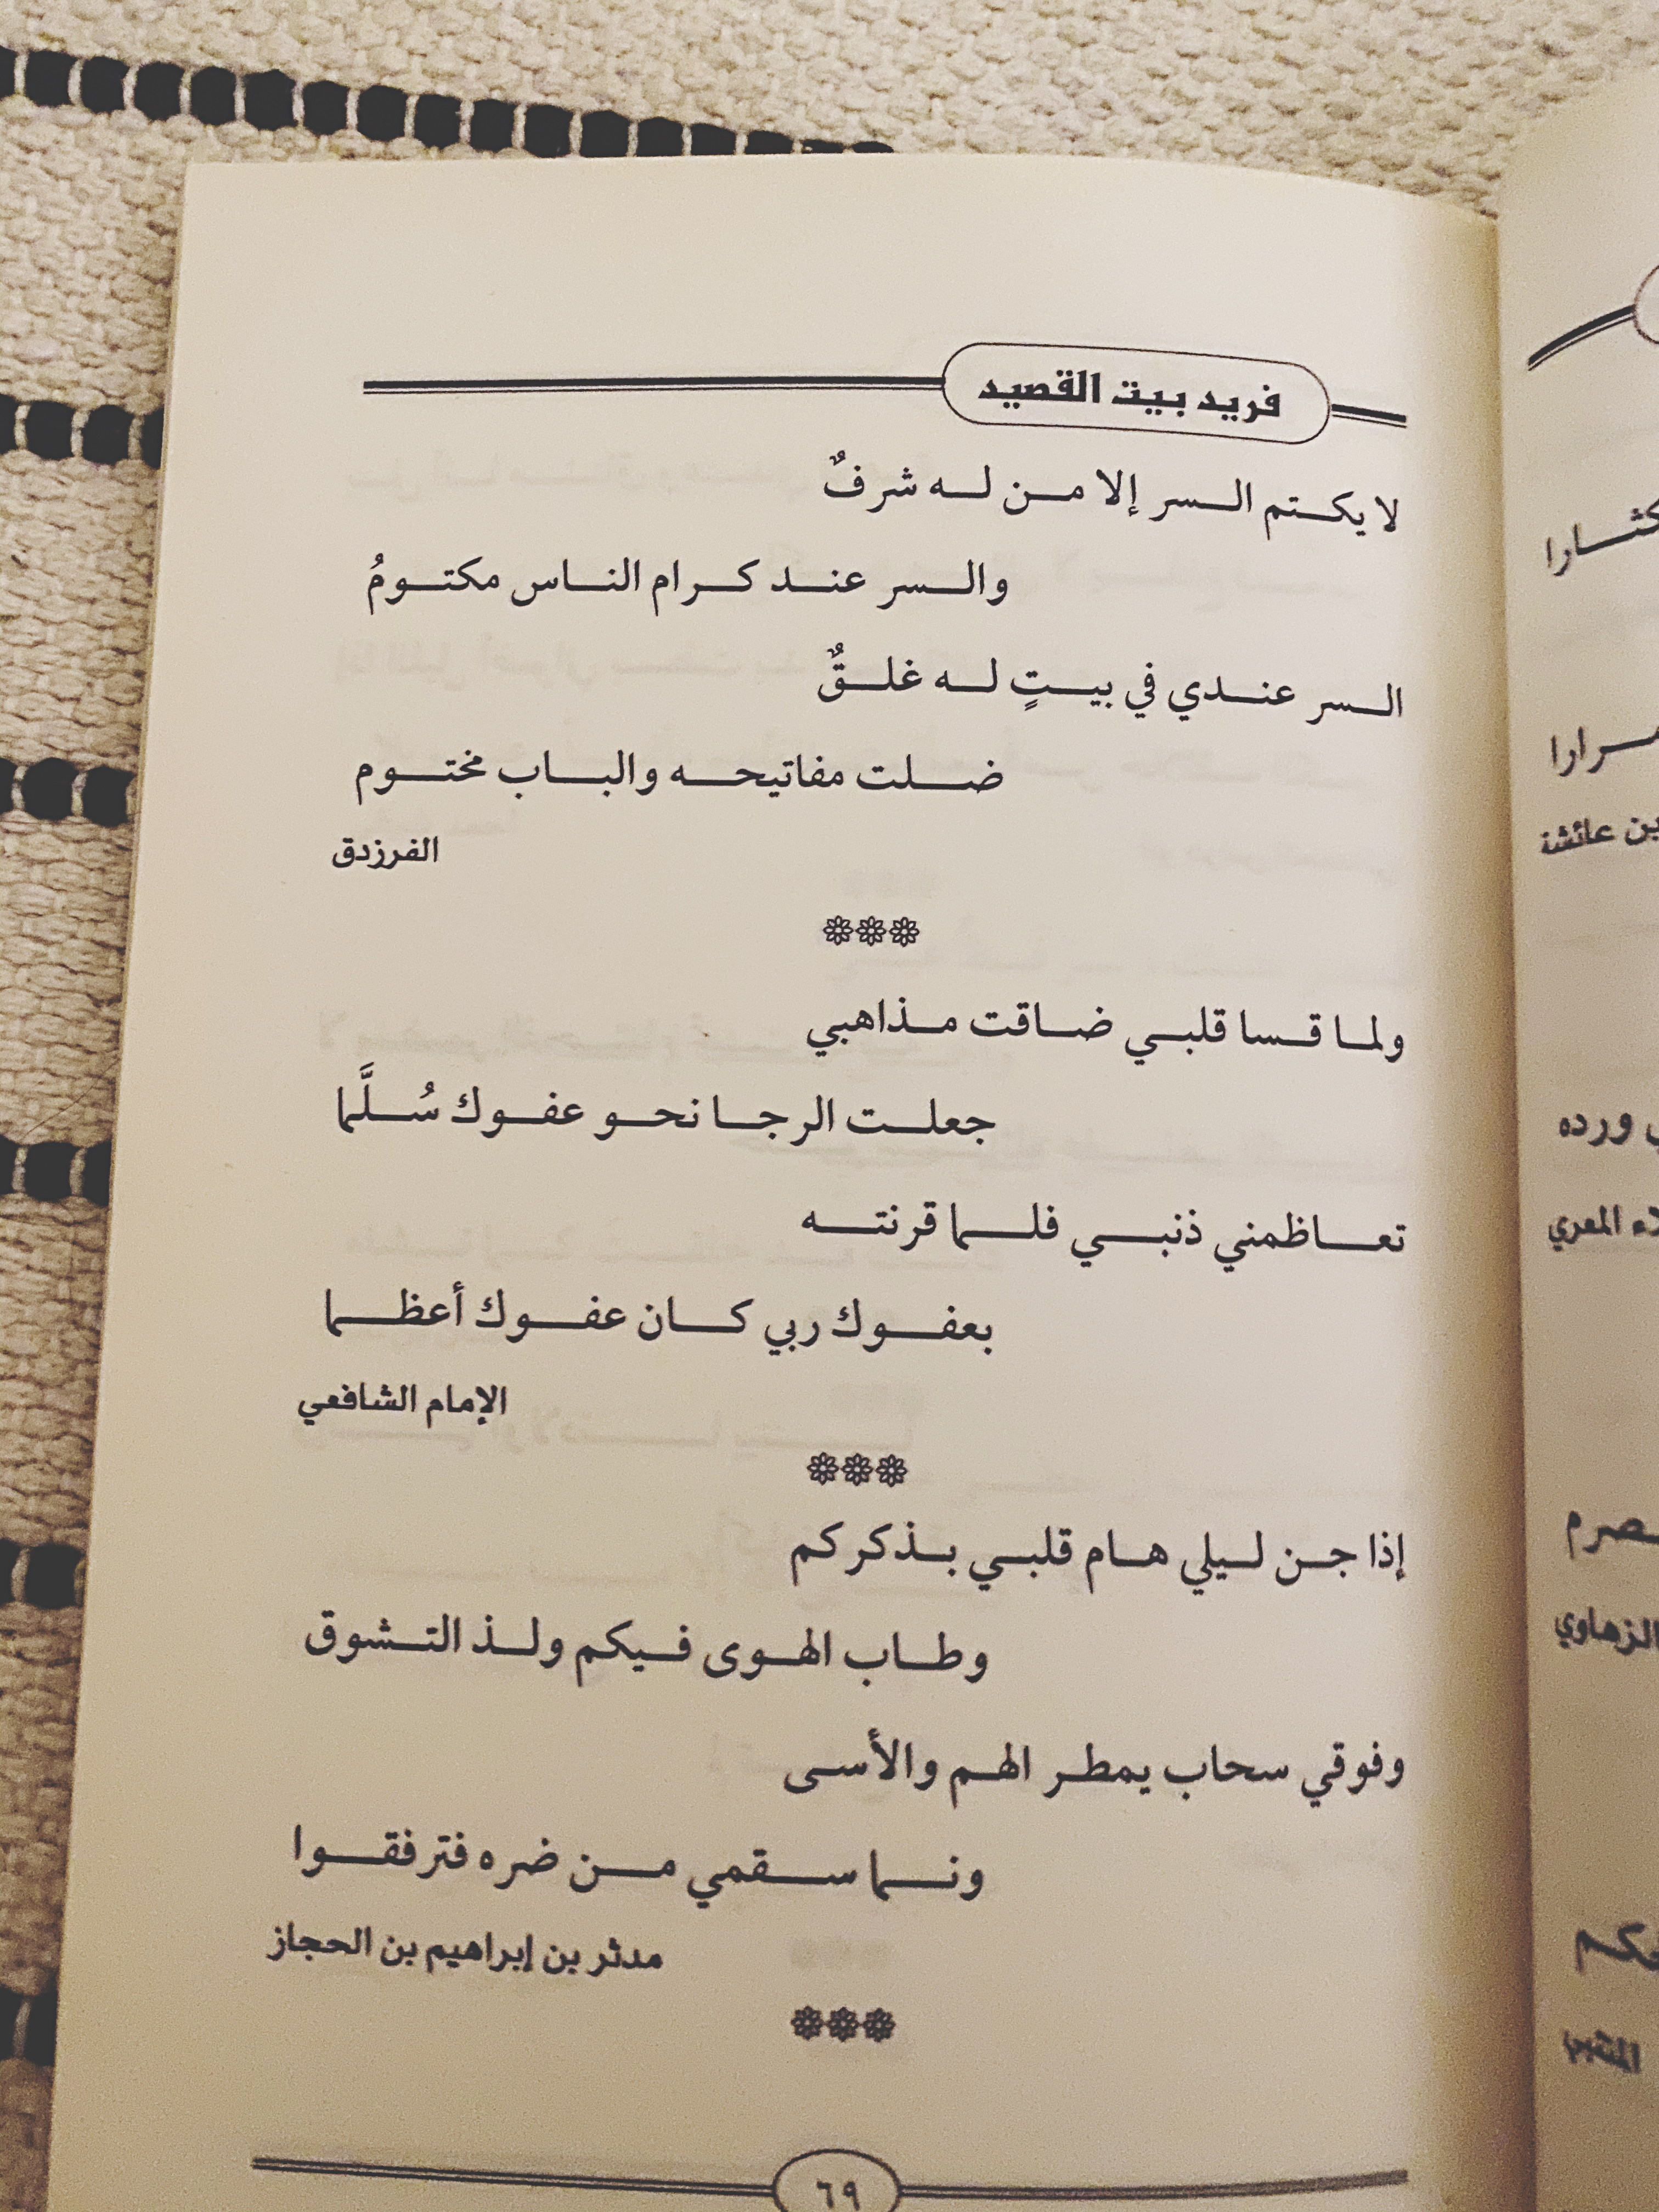 فريد بيت القصيد
لا يكتم السر إلا من له شرفٌ
والسر عند كرام الناس مكتومُ
السر عندي في بيتٍ له غلقٌ
ضلت مفاتيحه والباب مختوم
الفرزدق
ولما قسا قلبي ضاقت مذاهبي
جعلت الرجا نحو عفوك سُلَّما
تعاظمني ذنبي فلما قرنته
بعفوك ربي كان عفوك أعظما
الإمام الشافعي
إذا جن ليلي هام قلبي بذكركم
وطاب الهوى فيكم ولذ التشوق
وفوقي سحاب يمطر الهم والأسى
ونما سقمي من ضره فترفقوا
مدثر بن إبراهيم بن الحجاز
٦٩
مرارا
بن عائشة
ورده
المعري
الزهاوي